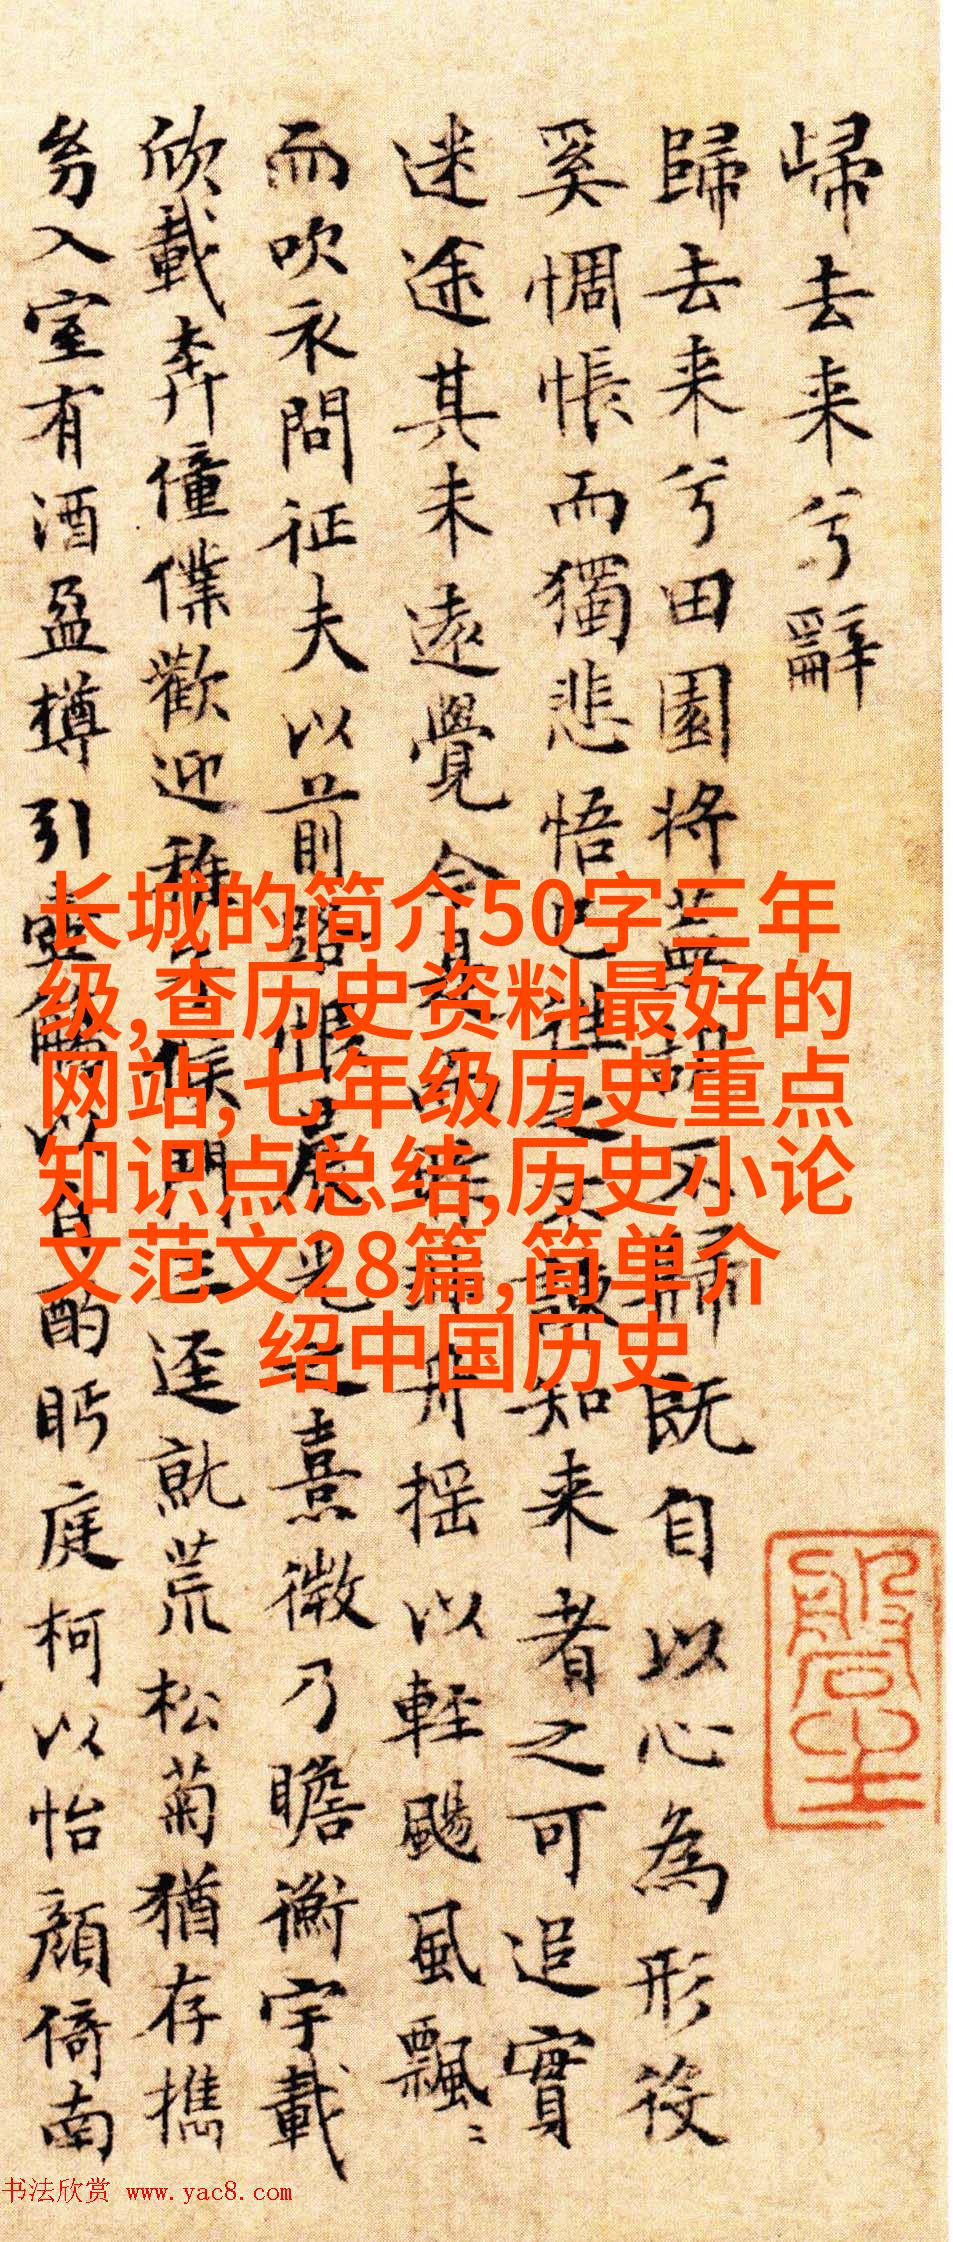 歸去来兮辭
歸去来兮田園将蕪胡不歸既自以心為形役
奚惆悵而獨悲悟已往之不諫知来者之可追實
迷途其未遠覺今是而昨非舟揺以輕颺風飄〻
而吹衣問征夫以前路恨晨光之熹微乃瞻衡宇載
欣載奔僮僕歡迎稚子候門三逕就荒松菊猶存攜
幼入室有酒盈樽引壺觴以自酌眄庭柯以怡顔倚南
长城的简介50字三年
级,查历史资料最好的
网站,七年级历史重点
知识点总结,历史小论
文范文28篇,简单介
绍中国历史
书法欣赏 www.yac8.com